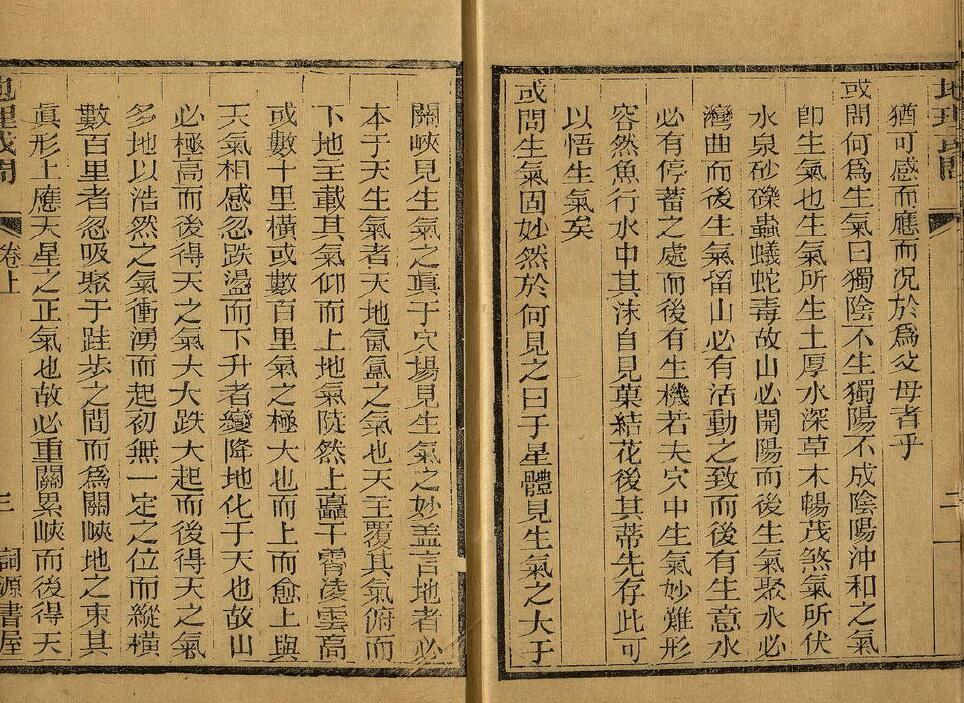 地理或問
二
猶可感而應而況於爲父母者乎
或問何爲生氣曰獨陰不生獨陽不成陰陽沖和之氣
卽生氣也生氣所生土厚水深草木暢茂煞氣所伏
水泉砂礫蟲蟻蛇毒故山必開陽而後生氣聚水必
灣曲而後生氣留山必有活動之致而後有生意水
必有停蓄之處而後有生機若夫穴中生氣妙難形
容然魚行水中其沫自見菓結花後其蒂先存此可
以悟生氣矣
或問生氣固妙然於何見之曰于星體見生氣之大于
關峽見生氣之眞于穴場見生氣之妙盖言地者必
本于天生氣者天地氤氳之氣也天主覆其氣俯而
下地主載其氣仰而上地氣陡然上矗干霄淩雲高
或數十里橫或數百里氣之極大也而上而愈上與
天氣相感忽跌盪而下升者變降地化于天也故山
必極高而後得天之氣大大跌大起而後得天之氣
多地以浩然之氣衝湧而起初無一定之位而縱橫
數百里者忽吸聚于跬步之間而爲關峽地之束其
眞形上應天星之正氣也故必重關累峽而後得天
地理或問
卷上
三
詞源書屋